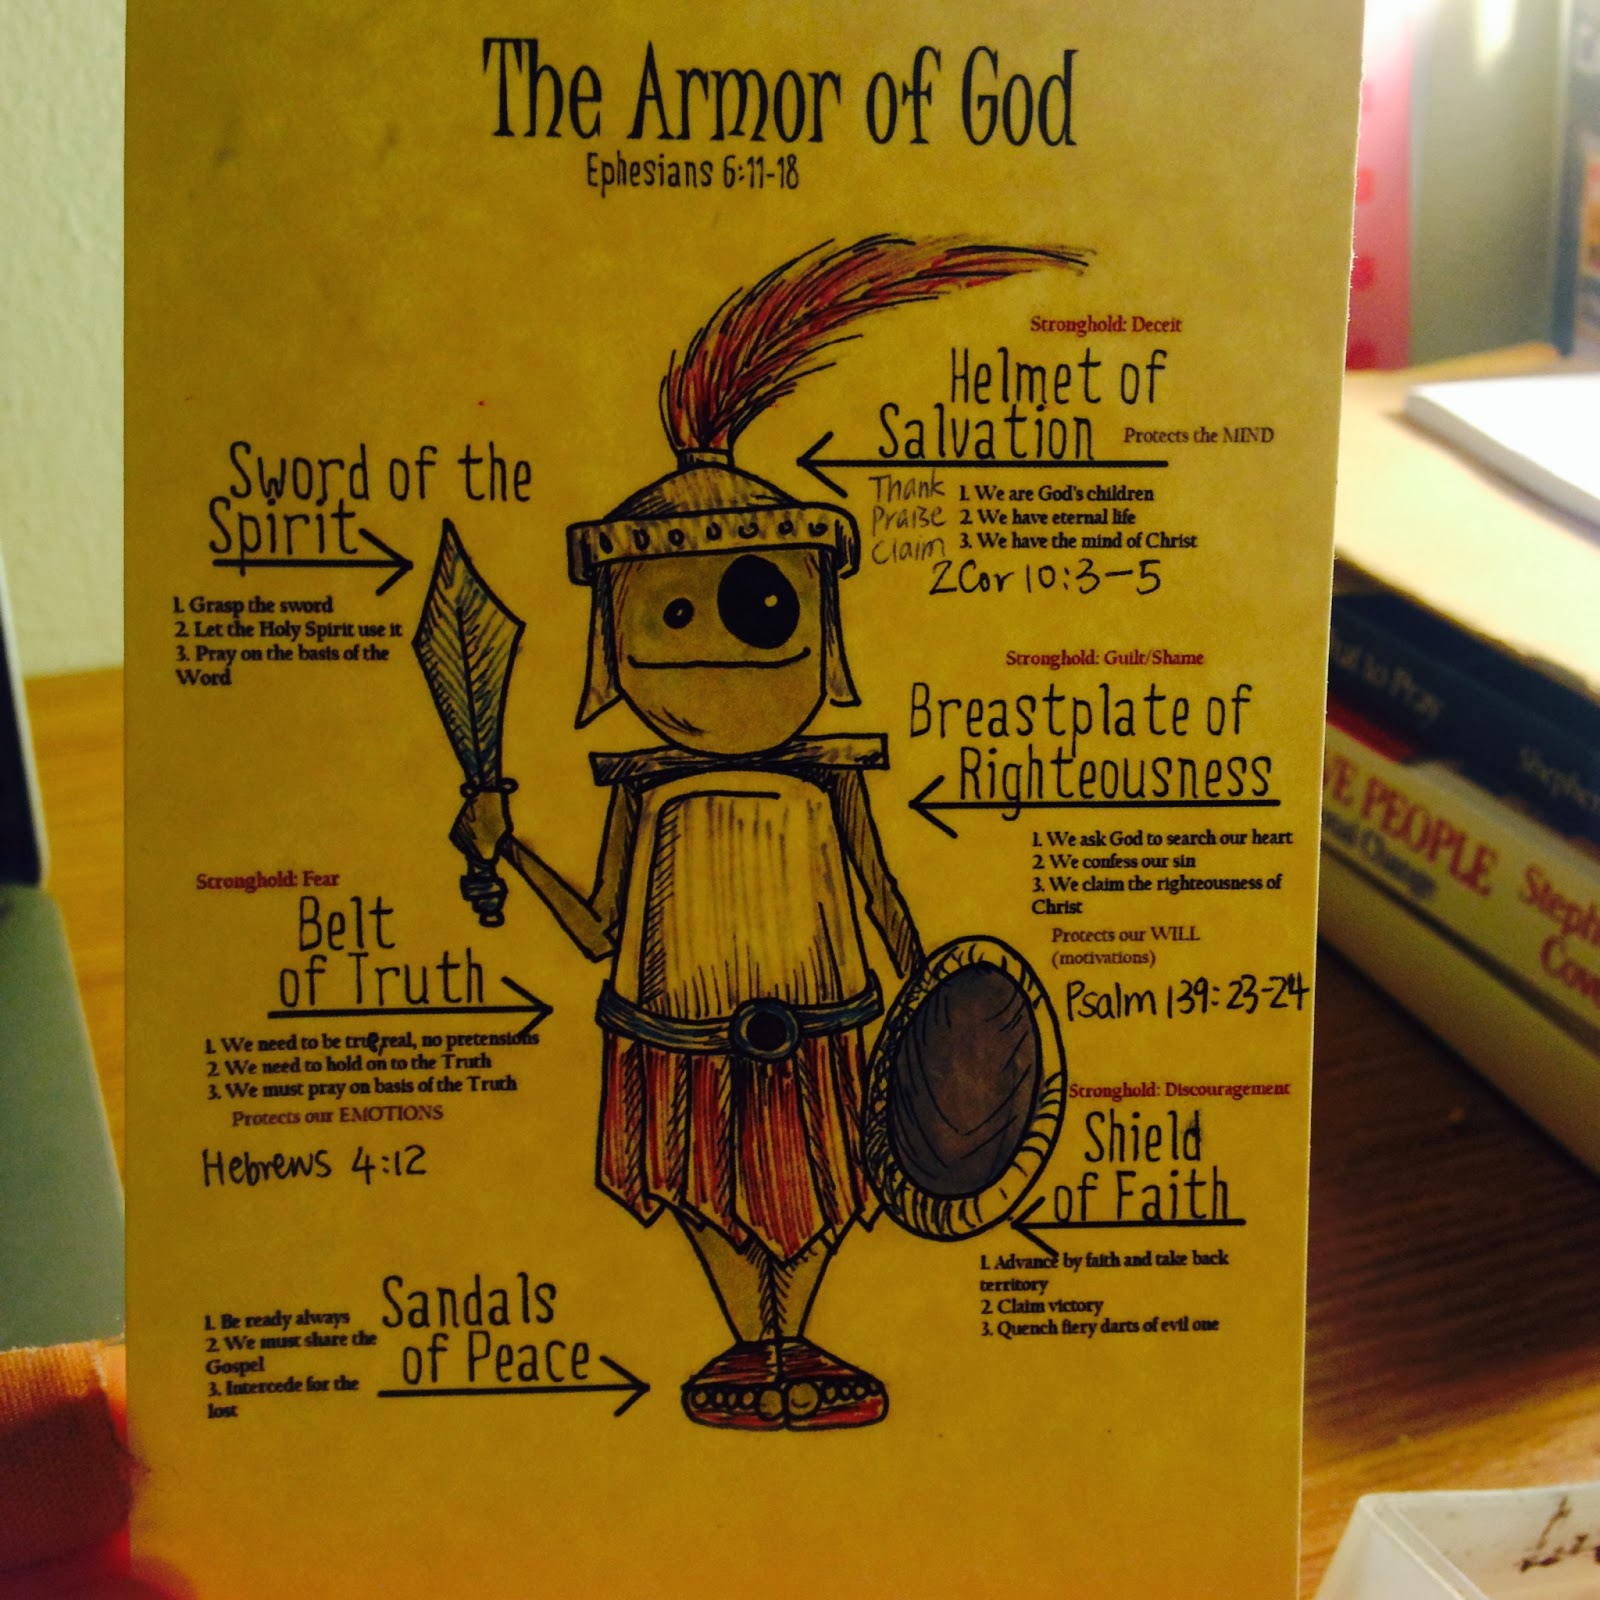 The Armor of God
Ephesians 6:11-18
Stronghold: Deceit
Helmet of
Salvation
Protects the MIND
Thank
Praise
Claim
1. We are God's children
2. We have eternal life
3. We have the mind of Christ
2 Cor 10:3-5
Sword of the
Spirit
1. Grasp the sword
2. Let the Holy Spirit use it
3. Pray on the basis of the
Word
Stronghold: Guilt/Shame
Breastplate of
Righteousness
1. We ask God to search our heart
2. We confess our sin
3. We claim the righteousness of
Christ
Protects our WILL
(motivations)
Psalm 139:23-24
Stronghold: Fear
Belt
of Truth
1. We need to be true, real, no pretensions
2. We need to hold on to the Truth
3. We must pray on basis of the Truth
Protects our EMOTIONS
Hebrews 4:12
Stronghold: Discouragement
Shield
of Faith
1. Advance by faith and take back
territory
2. Claim victory
3. Quench fiery darts of evil one
Sandals
of Peace
1. Be ready always
2. We must share the
Gospel
3. Intercede for the
lost
to Pray
PEOPLE
Change
Steph
Cove